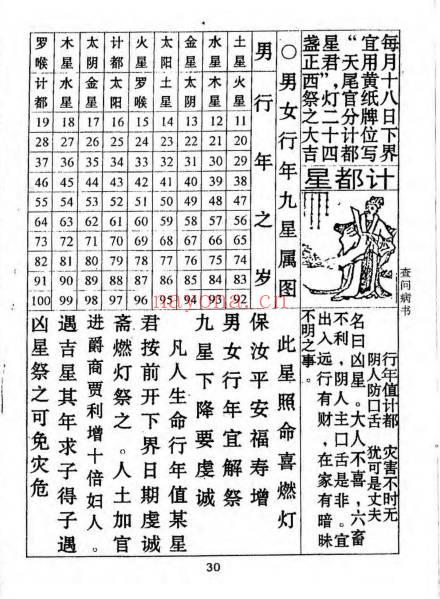 每月十八日下界
宜用黄纸牌位写
“天尾官分计都
星君”,灯二十四
盏正西祭之大吉
计都星
行年值计都 灾害不时无
阴人防口舌 犹可是丈夫
名曰凶星。大人不喜,六畜
不利,阴人主口舌是非。宜
出入远行有财,在家有暗昧
不明之事。
查问病书
○男女行年九星属图
男行年之岁
罗喉 木星 太阴 计都 火星 太阳 金星 水星 土星
计都 水星 金星 太阳 罗喉 土星 太阴 木星 火星
19 18 17 16 15 14 13 12 11
28 27 26 25 24 23 22 21 20
37 36 35 34 33 32 31 30 29
46 45 44 43 42 41 40 39 38
55 54 53 52 51 50 49 48 47
64 63 62 61 60 59 58 57 56
73 72 71 70 69 68 67 66 65
82 81 80 79 78 77 76 75 74
91 90 89 88 87 86 85 84 83
100 99 98 97 96 95 94 93 92
此星照命喜燃灯
保汝平安福寿增
男女行年宜解祭
九星下降要虔诚
凡人生命行年值某星
君按前开下界日期虔诚
斋燃灯祭之。人士加官
进爵商贾利增十倍妇人。
遇吉星其年求子得子遇
凶星祭之可免灾危
nayona.cn
30